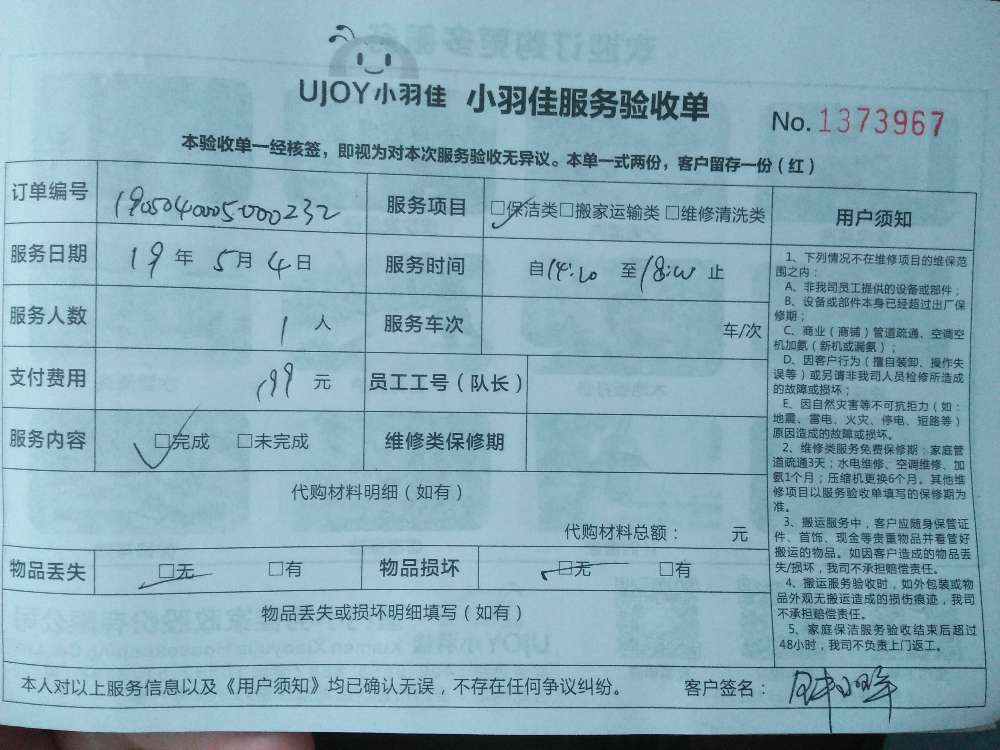 UJOY小羽佳 小羽佳服务验收单
No. 1373967
本验收单一经核签，即视为对本次服务验收无异议。本单一式两份，客户留存一份（红）
订单编号 1905040005000232 服务项目 □保洁类□搬家运输类□维修清洗类
服务日期 19年5月4日 服务时间 自14:20至18:20止
服务人数 1人 服务车次 车/次
支付费用 199元 员工工号（队长）
服务内容 □完成 □未完成 维修类保修期
代购材料明细（如有）
代购材料总额： 元
物品丢失 □无 □有 物品损坏 □无 □有
物品丢失或损坏明细填写（如有）
用户须知
1、下列情况不在维修项目的维保范
围之内：
A、非我司员工提供的设备或部件；
B、设备或部件本身已经超过出厂保
修期；
C、商业（商铺）管道疏通、空调空
机加氨（新机或漏氨）；
D、因客户行为（擅自装卸、操作失
误等）或另请非我司人员检修所造成
的故障或损坏；
E、因自然灾害等不可抗拒力（如：
地震、雷电、火灾、停电、短路等）
原因造成的故障或损坏。
2、维修类服务免费保修期：家庭管
道疏通3天；水电维修、空调维修、加
氨1个月；压缩机更换6个月。其他维
修项目以服务验收单填写的保修期为
准。
3、搬运服务中，客户应随身保管证
件、首饰、现金等贵重物品并看管好
搬运的物品。如因客户造成的物品丢
失/损坏，我司不承担赔偿责任。
4、搬运服务验收时，如外包装或物
品外观无搬运造成的损伤痕迹，我司
不承担赔偿责任。
5、家庭保洁服务验收结束后超过
48小时，我司不负责上门返工。
本人对以上服务信息以及《用户须知》均已确认无误，不存在任何争议纠纷。 客户签名：